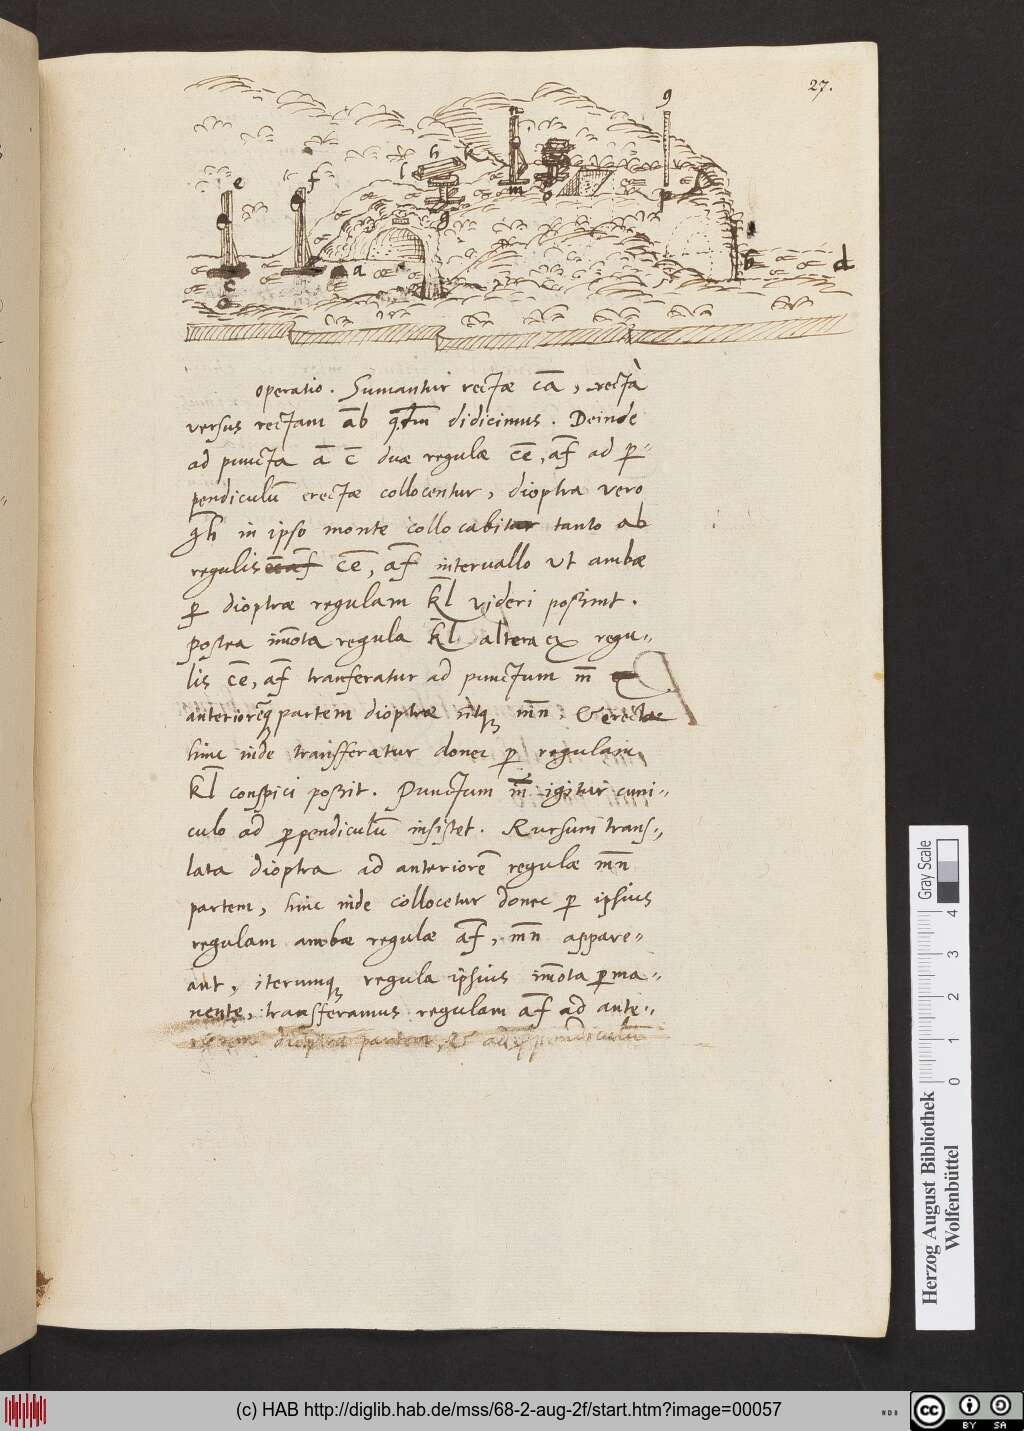 27.
n
g
e
f
h
k
i
l
m
o
p
g
a
c
b
d
operatio. Sumantur rectæ c̄a, rectà
versus rectam āb didicimus. Deinde
ad puncta ā c̄ duæ regulæ c̄e, āf ad p̲-
pendiculū erectæ collocentur, dioptra vero
ḡh in ipso monte collocabitur tanto ab
regulis c̄e, āf interuallo ut ambæ
p̲ dioptræ regulam k̄l videri poßint.
Postea im̄ota regula k̄l altera ex regu-
lis c̄e, āf transferatur ad punctum m̄
anteriorēq partem dioptræ sitq m̄n. & erectæ
hinc inde transfferatur donec p̲ regulam
k̄l conspici poßit. Punctum m̄ igitur cuni-
culo ad p̲pendiculū insistet. Rursum trans-
lata dioptra ad anteriorē regulæ m̄n
partem, hinc inde collocetur donec p̲ ipsius
regulam ambæ regulæ āf, m̄n appare-
ant, iterumq regula ipsius im̄ota p̲ma-
nente, transferamus regulam āf ad ante-
dioptræ partem, & ad p̲pendiculū
Herzog August Bibliothek
Wolfenbüttel
Gray Scale
0 1 2 3 4
(c) HAB http://diglib.hab.de/mss/68-2-aug-2f/start.htm?image=00057
cc BY SA